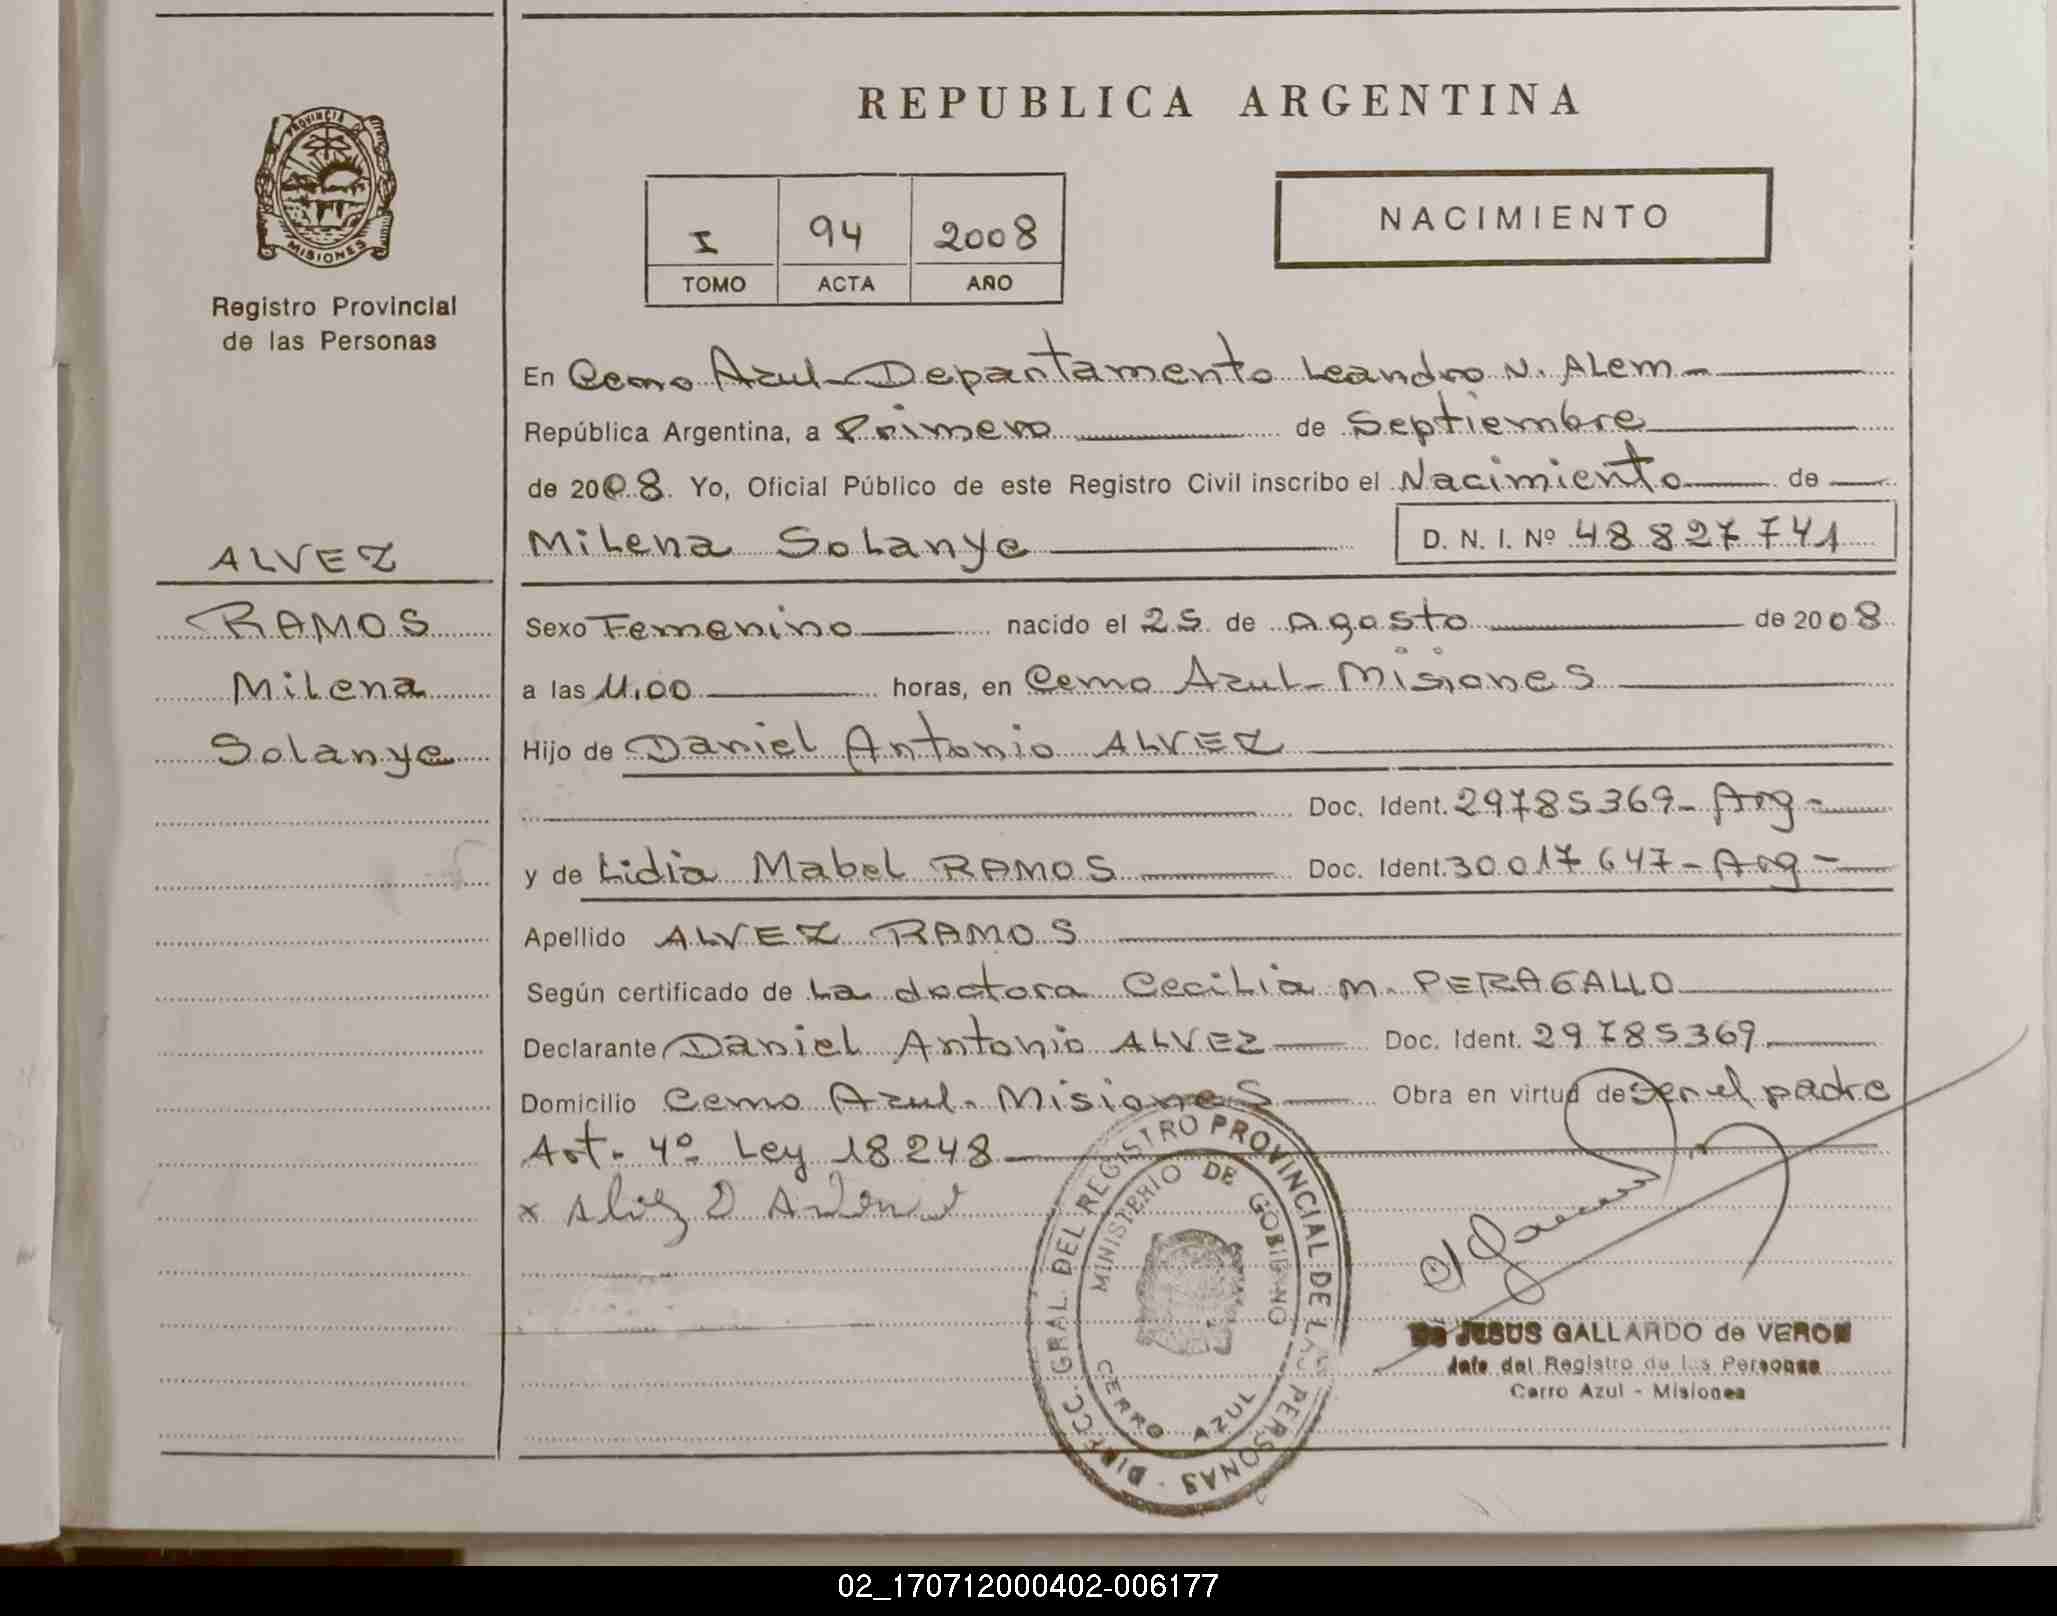 REPUBLICA ARGENTINA
PROVINCIA DE
MISIONES
Registro Provincial
de las Personas
I 94 2008
TOMO ACTA AÑO
NACIMIENTO
En Cerro Azul - Departamento Leandro N. ALem -
República Argentina, a Primero de Septiembre
de 2008. Yo, Oficial Público de este Registro Civil inscribo el Nacimiento de
MiLena SoLanye D. N. I. Nº 48 827 741
ALVEZ
RAMOS
Milena
Solanye
Sexo Femenino nacido el 25 de Agosto de 2008
a las 11,00 horas, en Cerro Azul - Misiones
Hijo de Daniel Antonio ALVEZ
Doc. Ident. 29785369 - Arg -
y de Lidia Mabel RAMOS Doc. Ident. 30 017 647 - Arg -
Apellido ALVEZ RAMOS
Según certificado de La doctora CeciLia M. PERAGALLO
Declarante Daniel Antonio ALVEZ Doc. Ident. 29785369
Domicilio Cerro Azul - Misiones Obra en virtud de ser el padre
Art. 4º Ley 18248
x
DIRECC. GRAL. DEL REGISTRO PROVINCIAL DE LAS PERSONAS
MINISTERIO DE GOBIERNO
CERRO AZUL
JESUS GALLARDO de VERON
Jefe del Registro de las Personas
Cerro Azul - Misiones
02_170712000402-006177